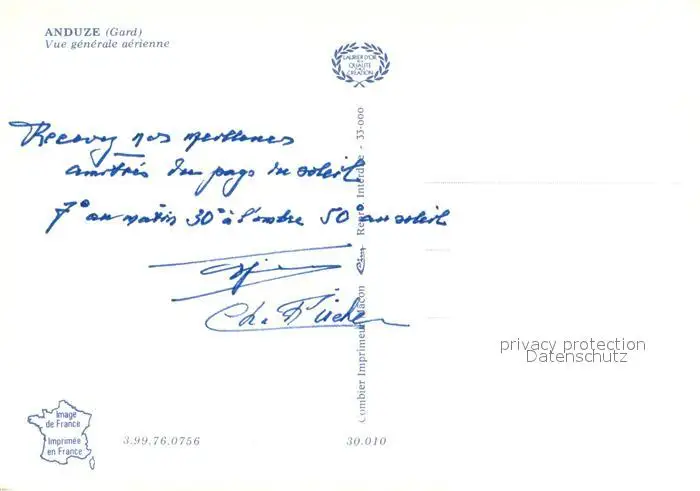 ANDUZE (Gard)
Vue générale aérienne
LAURIER D'OR
DE LA
QUALITÉ
CRÉATION
Recevez nos meilleures
amitiés du pays du soleil
7° au matin 30° à l'ombre 50° au soleil
Ch.
Combier Imprimeur Mâcon
CIM
Repro. Interdite - 33-000
privacy protection
Datenschutz
Image
de France
Imprimée
en France
3.99.76.0756
30.010